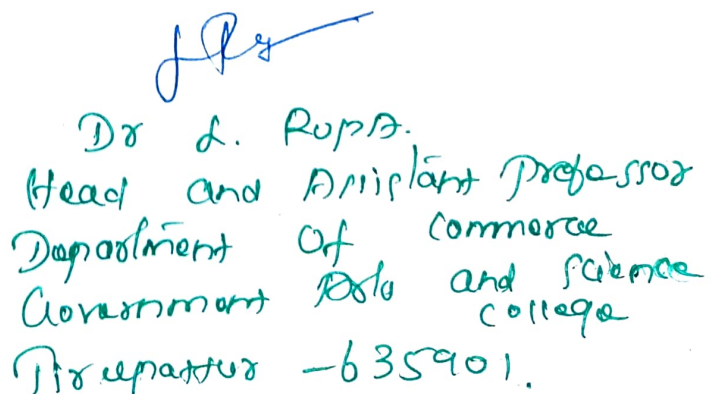 Dr L. RupA.
Head and Assistant Professor
Department Of Commerce
Government Arts and Science
College
Tirupattur -635901.